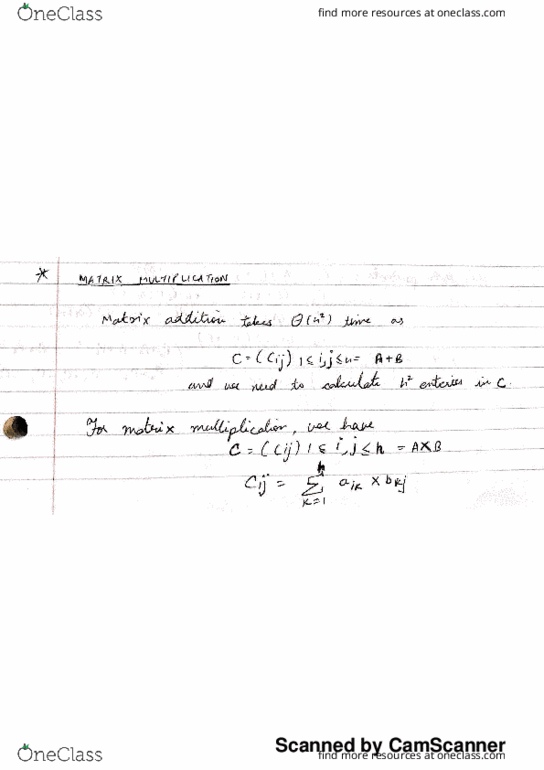 OneClass
find more resources at oneclass.com
* MATRIX MULTIPLICATION
Matrix addition takes Θ(n²) time as
C = (Cij) 1 ≤ i,j ≤ n = A+B
and we need to calculate n² enteries in C.
For matrix multiplication, we have
C = (Cij) 1 ≤ i,j ≤ n = A×B
Cij = n∑K=1 aik × bkj
Scanned by CamScanner
OneClass
find more resources at oneclass.com